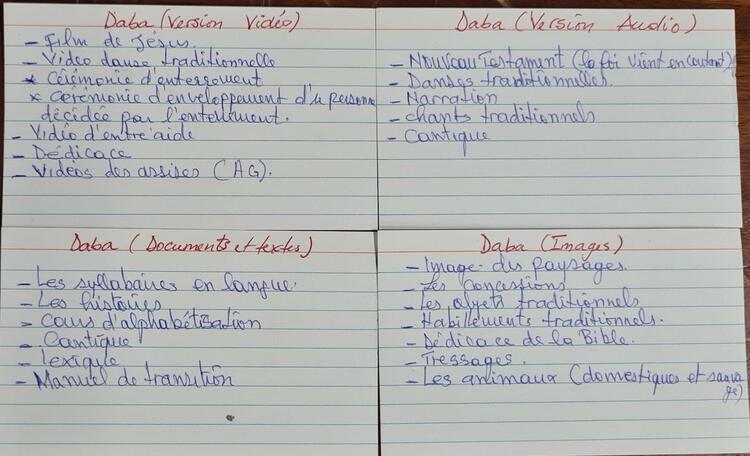 Daba (Version Vidéo)
- Film de Jésus.
- Video danse traditionnelle
* Cérémonie d'enterrement
* Cérémonie d'enveloppement d'une personne
décédée pour l'enterrement.
- Vidéo d'entre'aide
- Dédicace
- Vidéos des assises (AG).
Daba (Version Audio)
- Nouveau Testament (la foi vient en écoutant)
- Danses traditionnelles.
- Narration
- chants traditionnels
- Cantique
Daba (Documents et textes)
- Les syllabaires en langue.
- Les histoires
- Cours d'alphabétisation
- Cantique
- Lexique
- Manuel de transition
Daba (Images)
- Image des paysages.
- Les concessions
- Les objets traditionnels
- Habillements traditionnels.
- Dédicace de la Bible.
- Tressages.
- Les animaux (domestiques et sauva
ge)